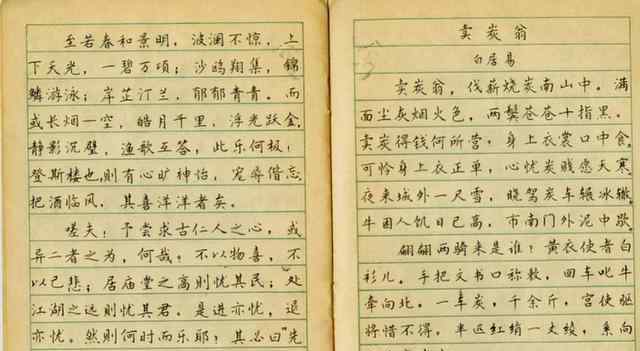 至若春和景明，波澜不惊，上
下天光，一碧万顷；沙鸥翔集，锦
鳞游泳；岸芷汀兰，郁郁青青。而
或长烟一空，皓月千里，浮光跃金，
静影沉璧，渔歌互答，此乐何极！
登斯楼也，则有心旷神怡，宠辱偕忘，
把酒临风，其喜洋洋者矣。
嗟夫！予尝求古仁人之心，或
异二者之为，何哉？不以物喜，不
以己悲；居庙堂之高则忧其民；处
江湖之远则忧其君。是进亦忧，退
亦忧。然则何时而乐耶？其必曰“先
卖炭翁
白居易
卖炭翁，伐薪烧炭南山中。满
面尘灰烟火色，两鬓苍苍十指黑。
卖炭得钱何所营，身上衣裳口中食。
可怜身上衣正单，心忧炭贱愿天寒。
夜来城外一尺雪，晓驾炭车辗冰辙。
牛困人饥日已高，市南门外泥中歇。
翩翩两骑来是谁？黄衣使者白
衫儿。手把文书口称敕，回车叱牛
牵向北。一车炭，千余斤，宫使驱
将惜不得。半匹红绡一丈绫，系向